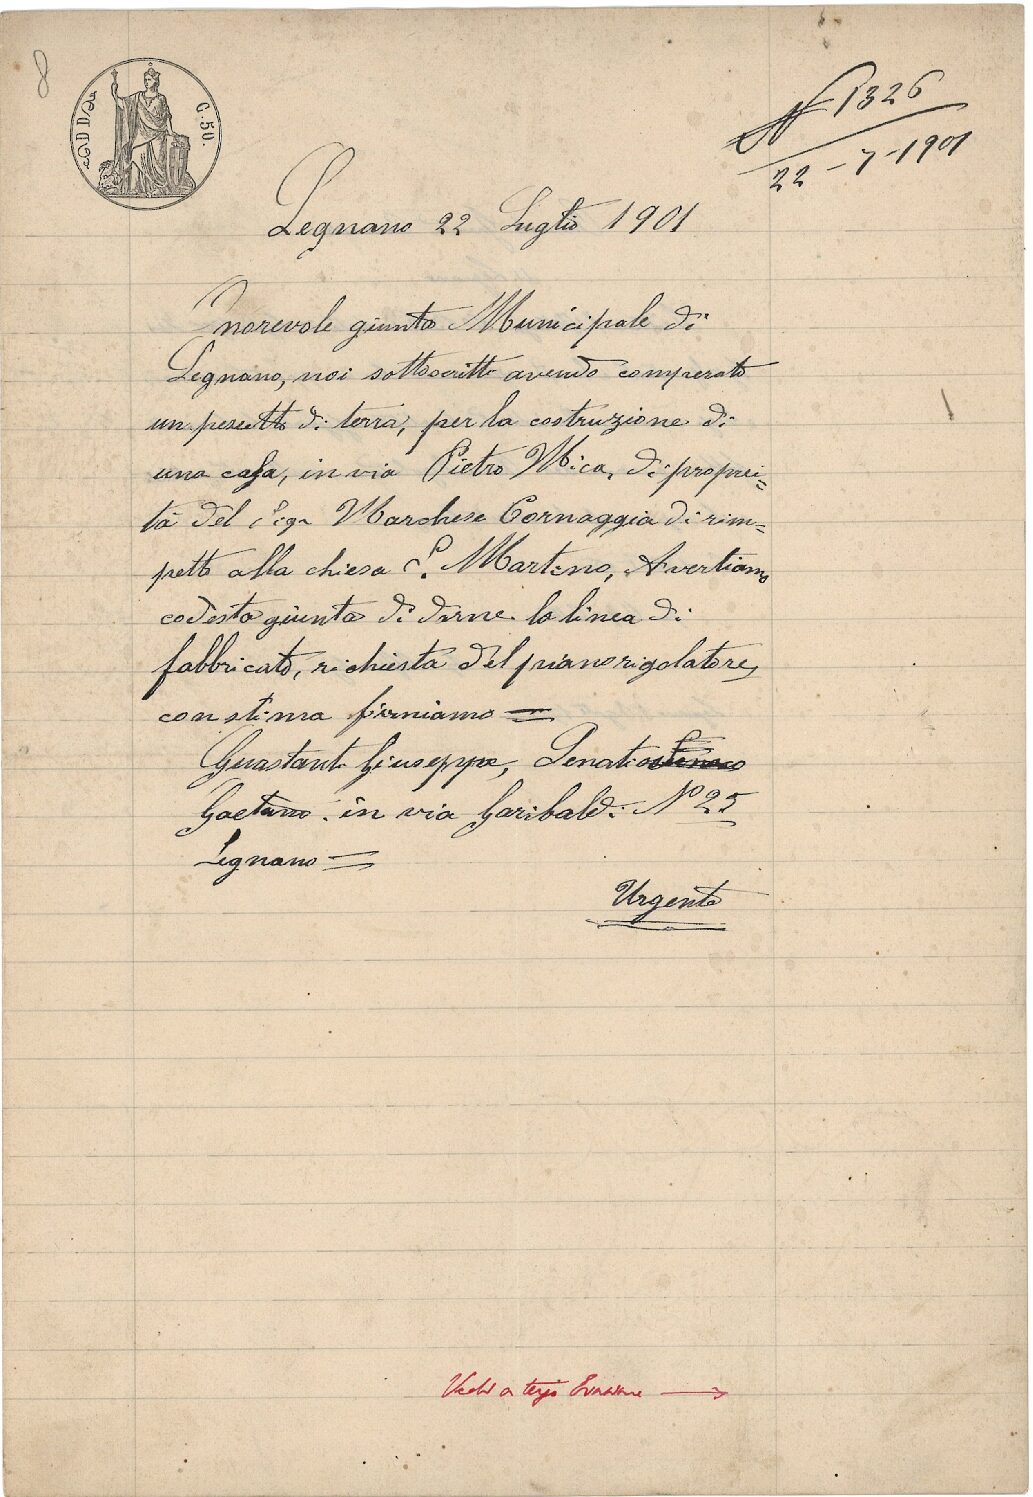 8
C. 50.
N 1326
22-7-1901
Legnano 22 Luglio 1901
Onorevole giunta Municipale di
Legnano, noi sottoscritti avendo comperato
un pesetto di terra, per la costruzione di
una casa, in via Pietro Mica, di propriei=
tà del Segr Marchese Cornaggia di rim=
petto alla chiesa S. Martino, Avertiamo
codesta giunta di darne la linea di
fabbricato, richiesta del piano rigolatore,
con stima firmiamo =
Guastanti Giuseppe, Penati
Gaetano. in via Garibaldi No 25
Legnano =
Urgente
Vedi a tergo Evasione